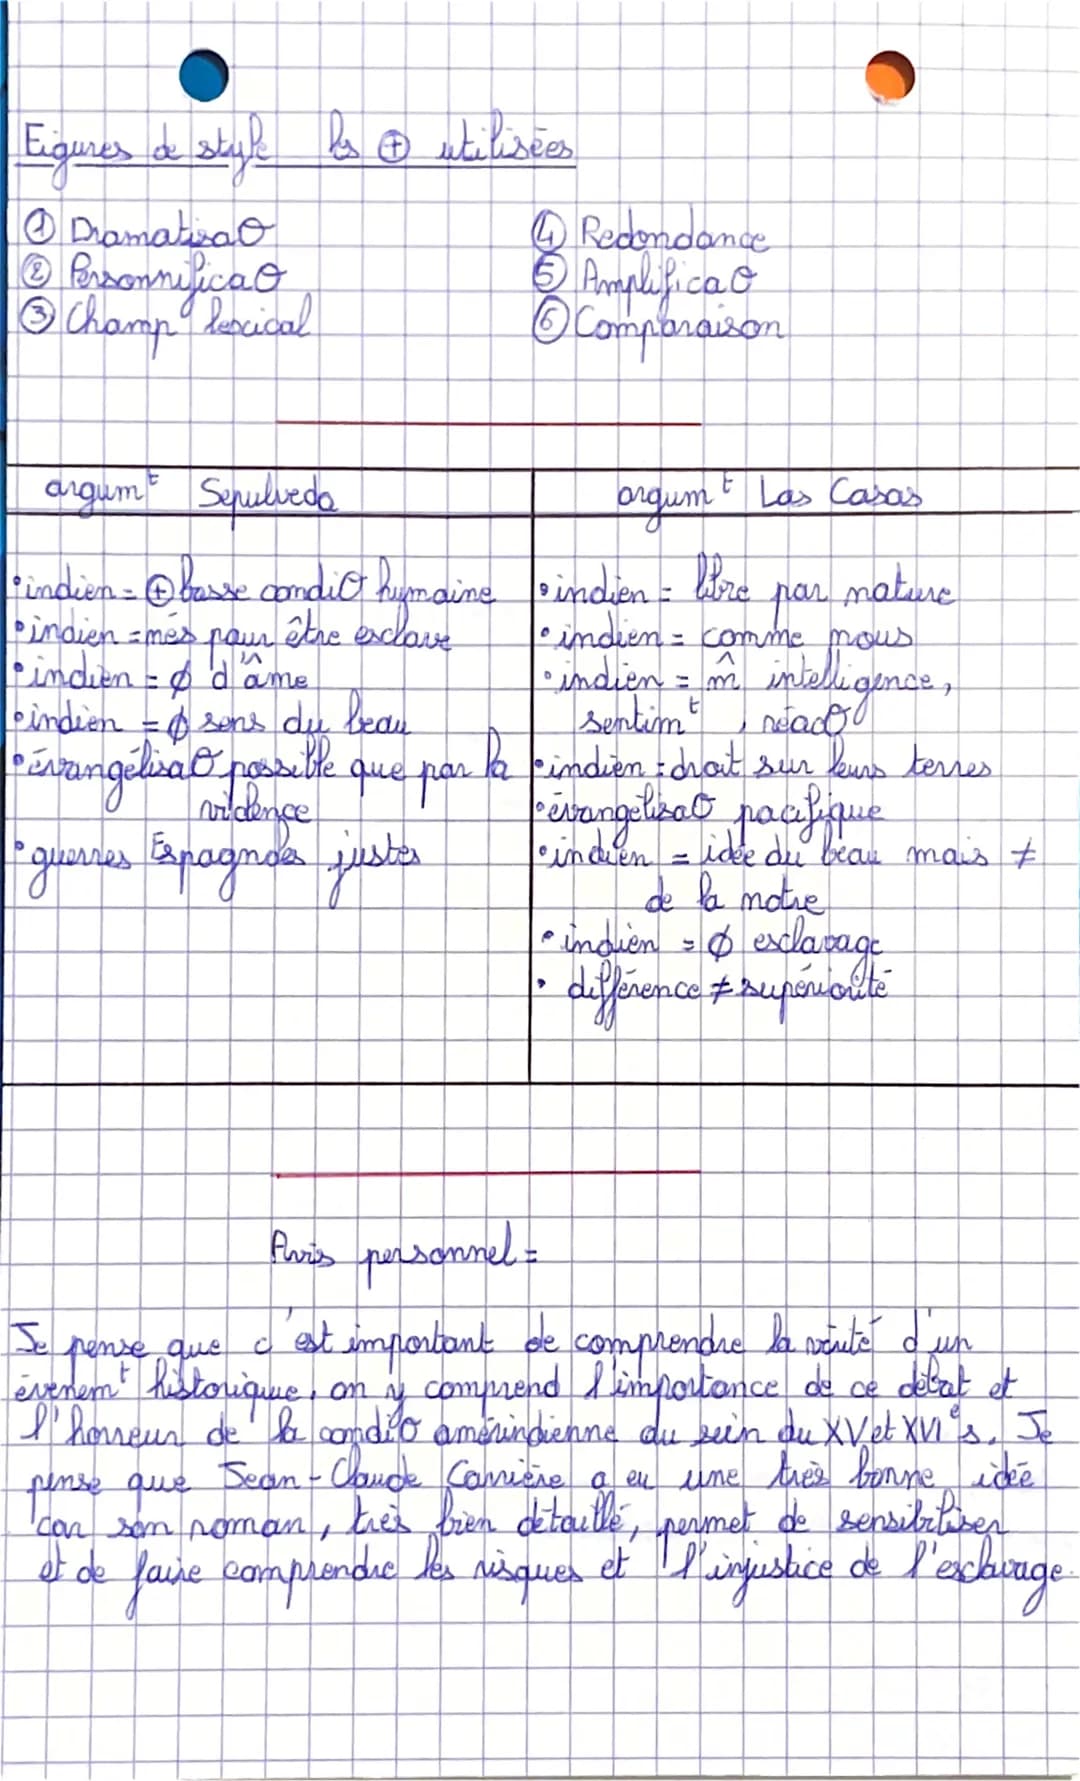 Figures de style les ⊕ utilisées
① Dramatisaθ
② Personnificaθ
③ Champ lexical
④ Redondance
⑤ Amplificaθ
⑥ Comparaison
argumᵗ Sepulveda
• indien = ⊕ basse condiθ humaine
• indien = nés pour être esclave
• indien = ∅ d'âme
• indien = ∅ sens du beau
• évangélisaθ possible que par la
violence
• guerres Espagnoles justes
argumᵗ Las Casas
• indien = libre par nature
• indien = comme nous
• indien = m̂ intelligence,
sentimᵗ, réacθ
• indien = droit sur leurs terres
• évangélisaθ pacifique
• indien = idée du beau mais ≠
de la notre
• indien = ∅ esclavage
• différence ≠ supériorité
Avis personnel =
Je pense que c'est important de comprendre la vérité d'un
évenemᵗ historique, on y comprend l'importance de ce débat et
l'horreur de la condiθ amérindienne du sein du XV et XVIᵉ s. Je
pense que Jean-Claude Carrière a eu une très bonne idée
car son roman, très bien détaillé, permet de sensibiliser
et de faire comprendre les risques et l'injustice de l'esclavage.